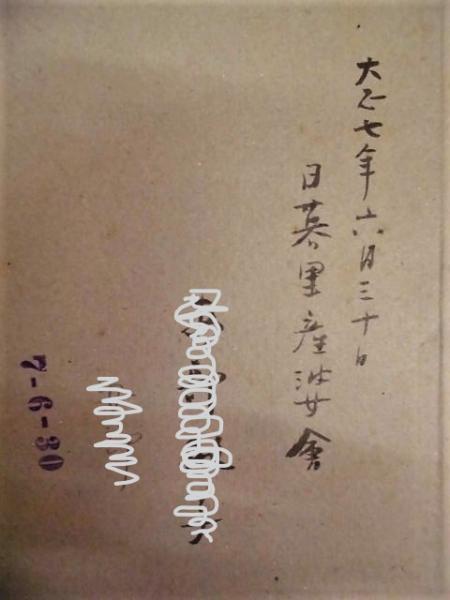 大正七年六月三十日
日暮里産婆會
7-6-30